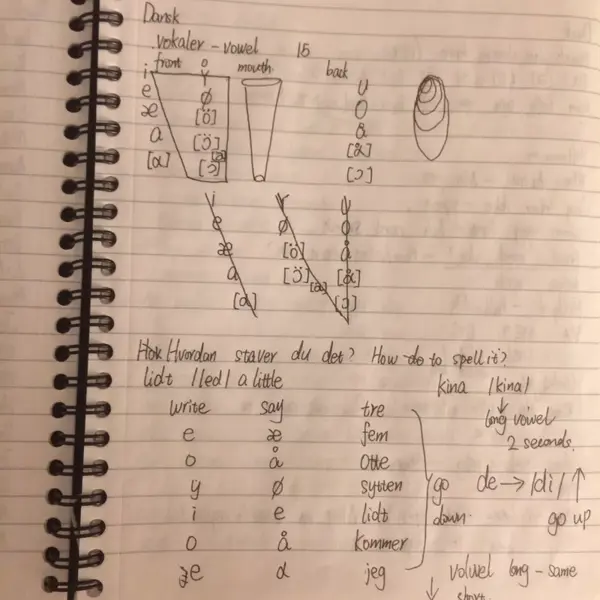 Dansk
vokaler - vowel 15
front mouth back
i y u
e ø o
æ [ö] å
a [ɔ̈] [å]
[ɑ] [ɔ] [ɔ]
i y u
e ø o
æ [ö] å
a [ɔ̈] [a] [å]
[ɑ] [ɔ]
Hvordan staver du det? How do to spell it?
lidt /led/ a little kina /kina/
write say tre long vowel
e æ fem 2 seconds.
o å otte
y ø sytten go de → /di/ ↑
i e lidt down. go up
o å kommer
e ɑ jeg volwel long - same
↓ short